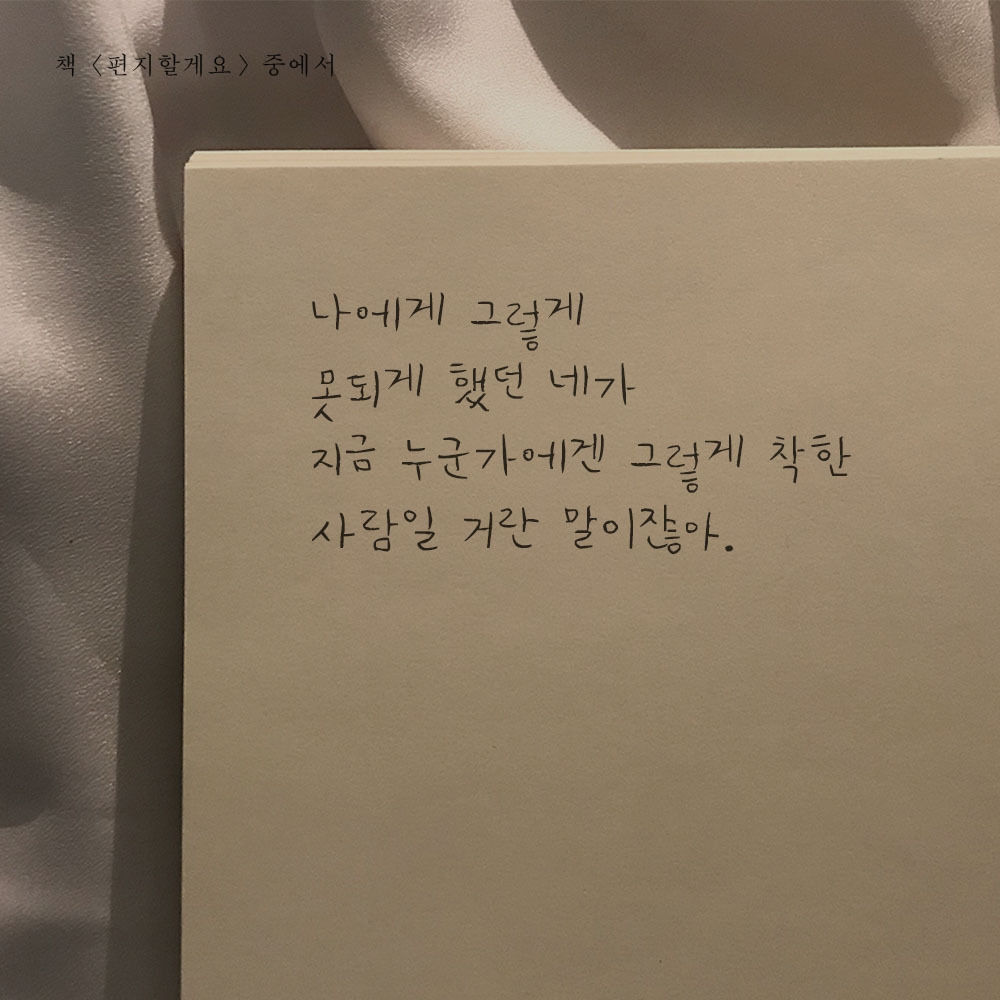 책 〈편지할게요〉 중에서
나에게 그렇게
못되게 했던 네가
지금 누군가에겐 그렇게 착한
사람일 거란 말이잖아.